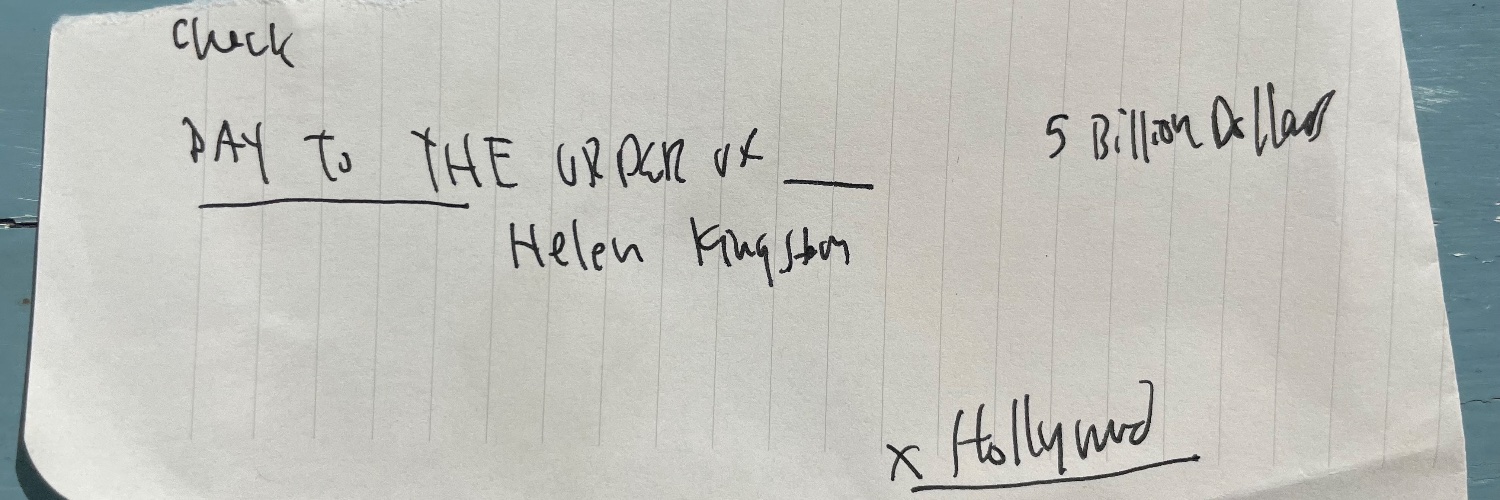 Check
PAY to THE ORDER OF ___ 5 Billion Dollars
Helen Kingston
x Hollywood